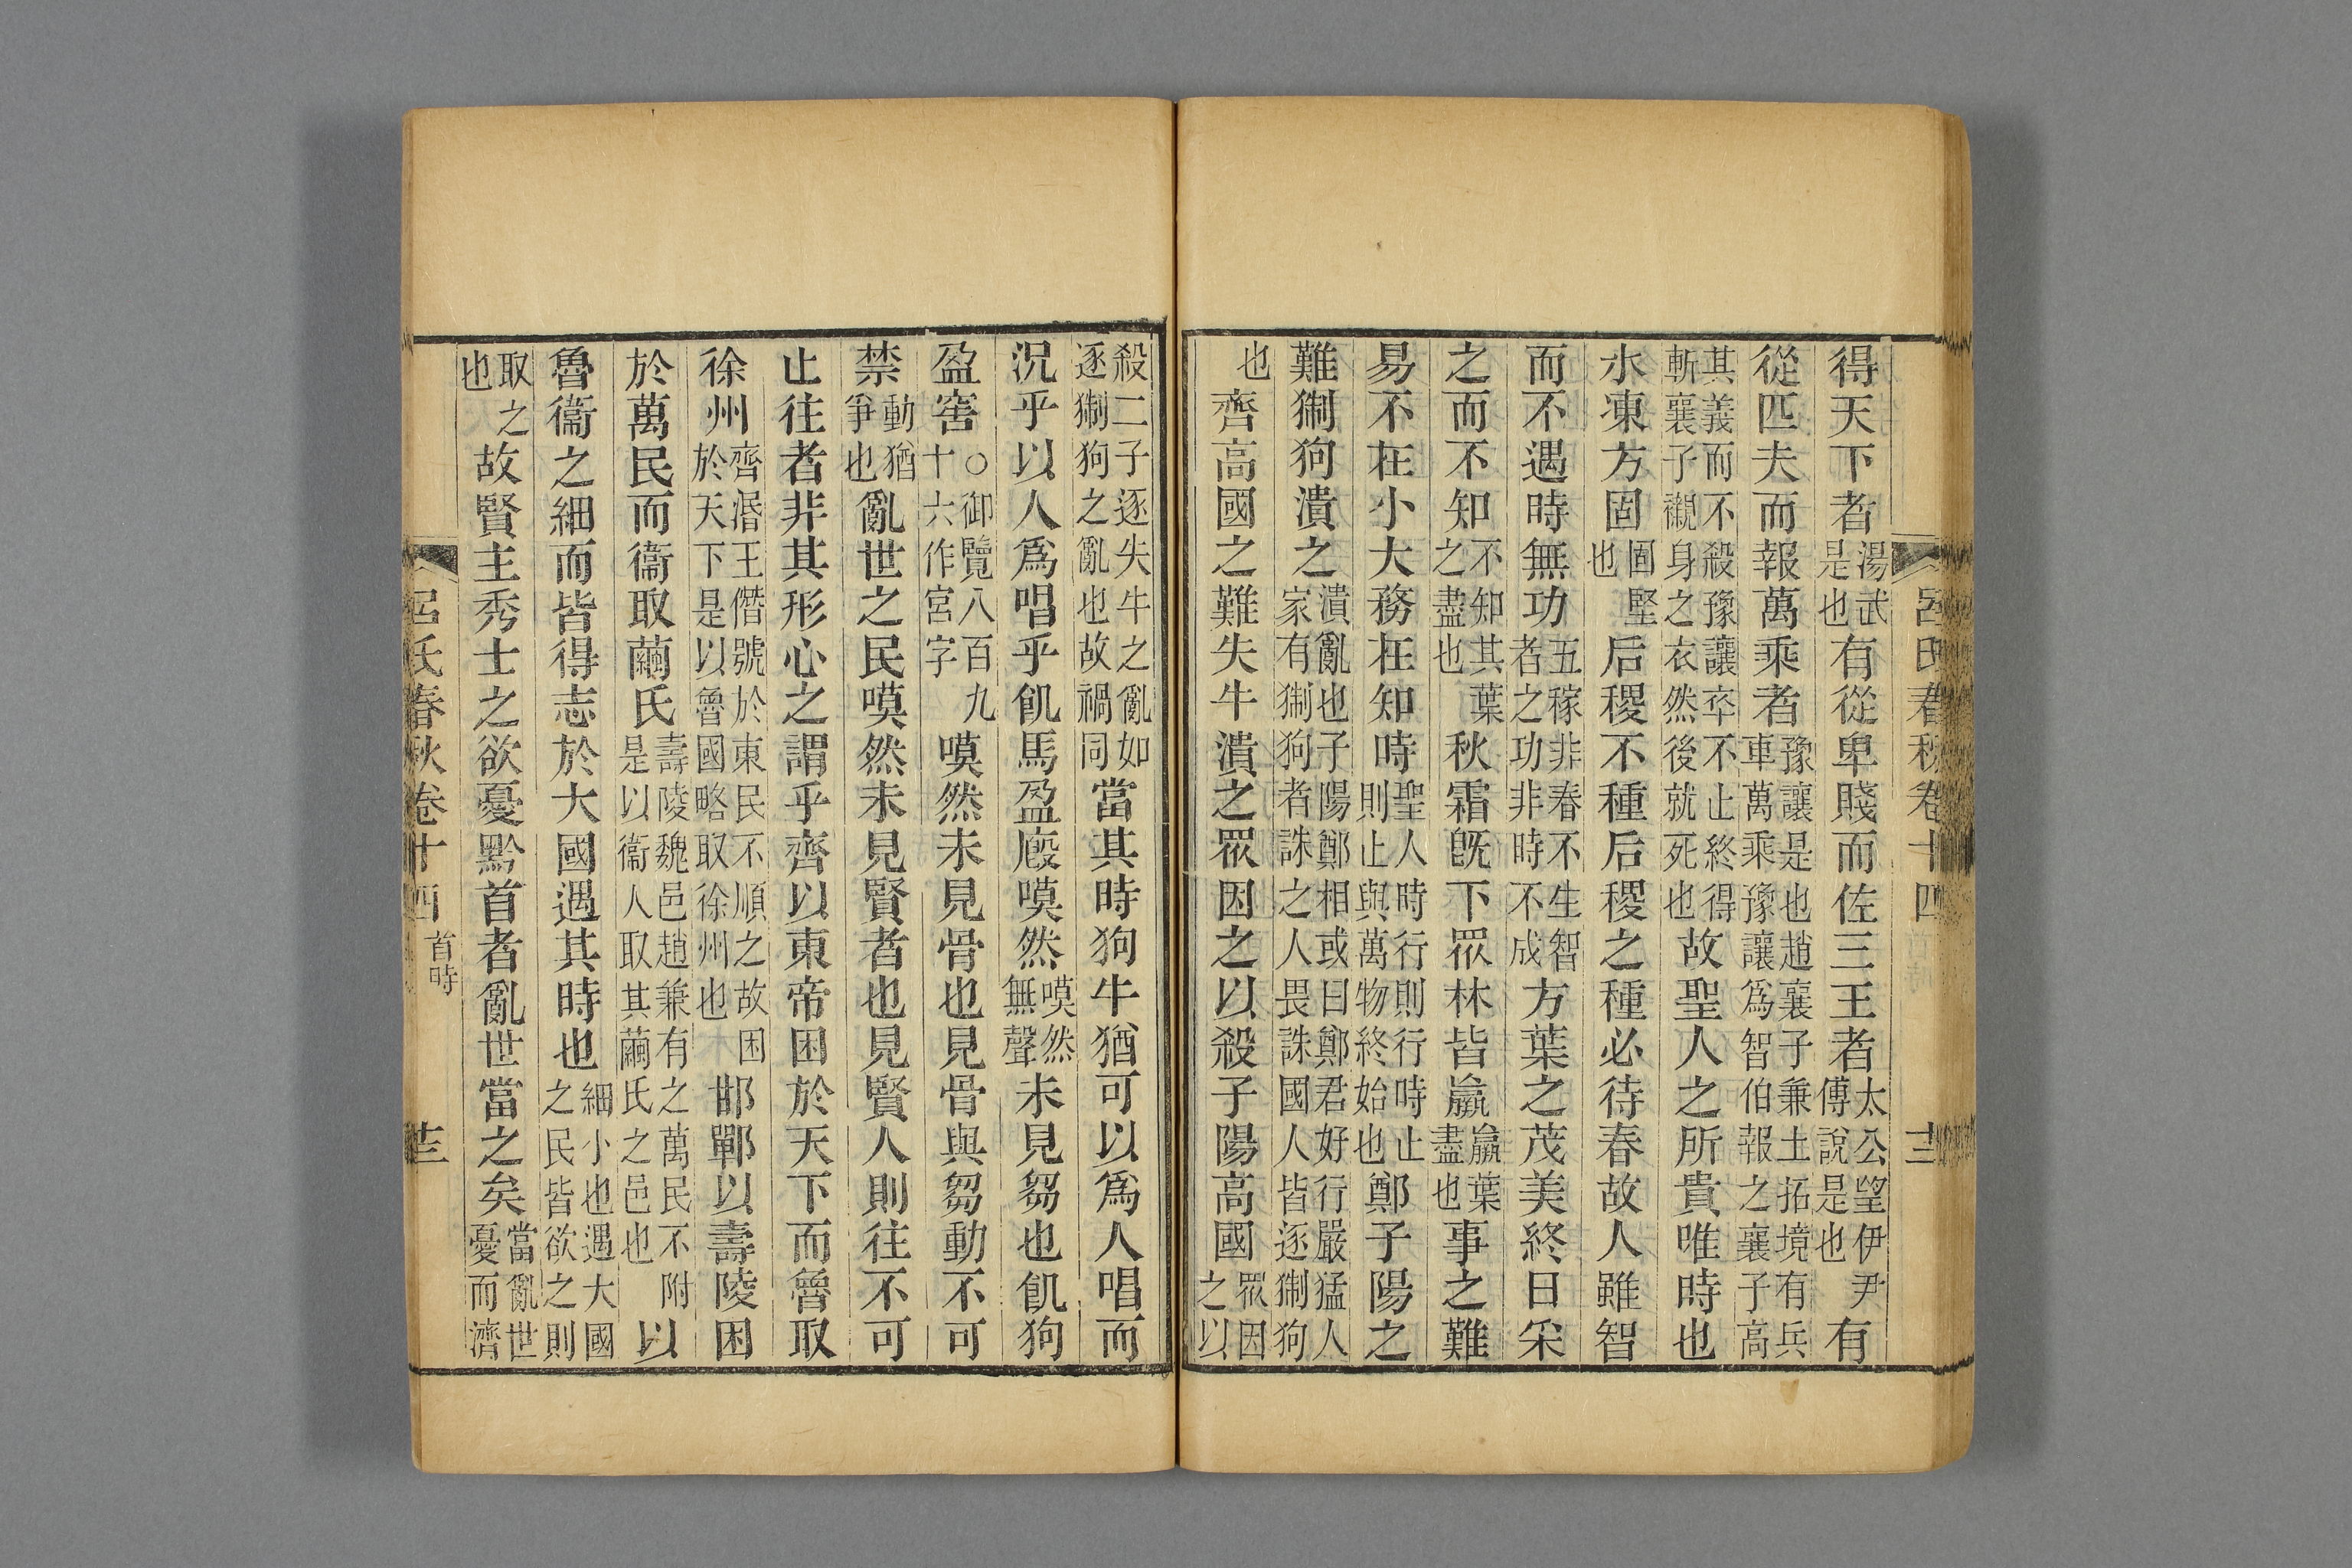 呂氏春秋卷十四 十二
得天下者湯武是也有從卑賤而佐三王者太公望伊尹傅說是也有
從匹夫而報萬乘者豫讓是也趙襄子兼土拓境有兵車萬乘豫讓爲智伯報之襄子高
其義而不殺豫讓卒不止終得斬襄子襯身之衣然後就死也故聖人之所貴唯時也
水凍方固固堅也后稷不種后稷之種必待春故人雖智
而不遇時無功五稼非春不生智者之功非時不成方葉之茂美終日采
之而不知不知其葉之盡也秋霜旣下眾林皆羸羸葉盡也事之難
易不在小大務在知時聖人時行則行時止則止與萬物終始也鄭子陽之
難猘狗潰之潰亂也子陽鄭相或曰鄭君好行嚴猛人家有猘狗者誅之人畏誅國人皆逐猘狗
也齊高國之難失牛潰之眾因之以殺子陽高國眾因之以
殺二子逐失牛之亂如逐猘狗之亂也故禍同當其時狗牛猶可以爲人唱而
況乎以人爲唱乎飢馬盈廄嗼然嗼然無聲未見芻也飢狗
盈窖○御覽八百九十六作宮字嗼然未見骨也見骨與芻動不可
禁動猶爭也亂世之民嗼然未見賢者也見賢人則往不可
止往者非其形心之謂乎齊以東帝困於天下而魯取
徐州齊湣王僭號於東民不順之故困於天下是以魯國略取徐州也邯鄲以壽陵困
於萬民而衞取繭氏壽陵魏邑趙兼有之萬民不附是以衞人取其繭氏之邑也以
魯衞之細而皆得志於大國遇其時也細小也遇大國之民皆欲之則
取之也故賢主秀士之欲憂黔首者亂世當之矣當亂世憂而濟
呂氏春秋卷十四 首時 十三